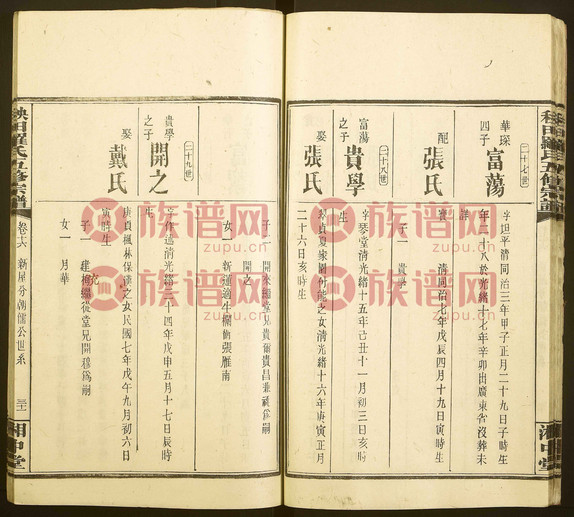 二十七世
華琛
四子
富蕩
字坦平清同治三年甲子正月二十九日子時生
年二十八於光緒十七年辛卯出廣東省沒葬未
詳
配
張氏
清同治七年戊辰四月十九日寅時生
子一 貴學
二十八世
富蕩
之子
貴學
字琴堂清光緒十五年己丑十一月初三日亥時
生
娶
張氏
之女清光緒十六年庚寅正月
二十六日亥時生
子二 開之
女一
張雁南
二十九世
貴學
之子
開之
清光緒三十四年戊申五月十七日辰時
生
娶
戴氏
庚貞楓林保
之女民國七年戊午九月初六日
寅時生
子一 建
從堂兄開移為嗣
女一 月華
秧田羅氏五修宗譜
卷十六 新屋分朝儒公世系
湘中堂
族谱网
zupu.cn